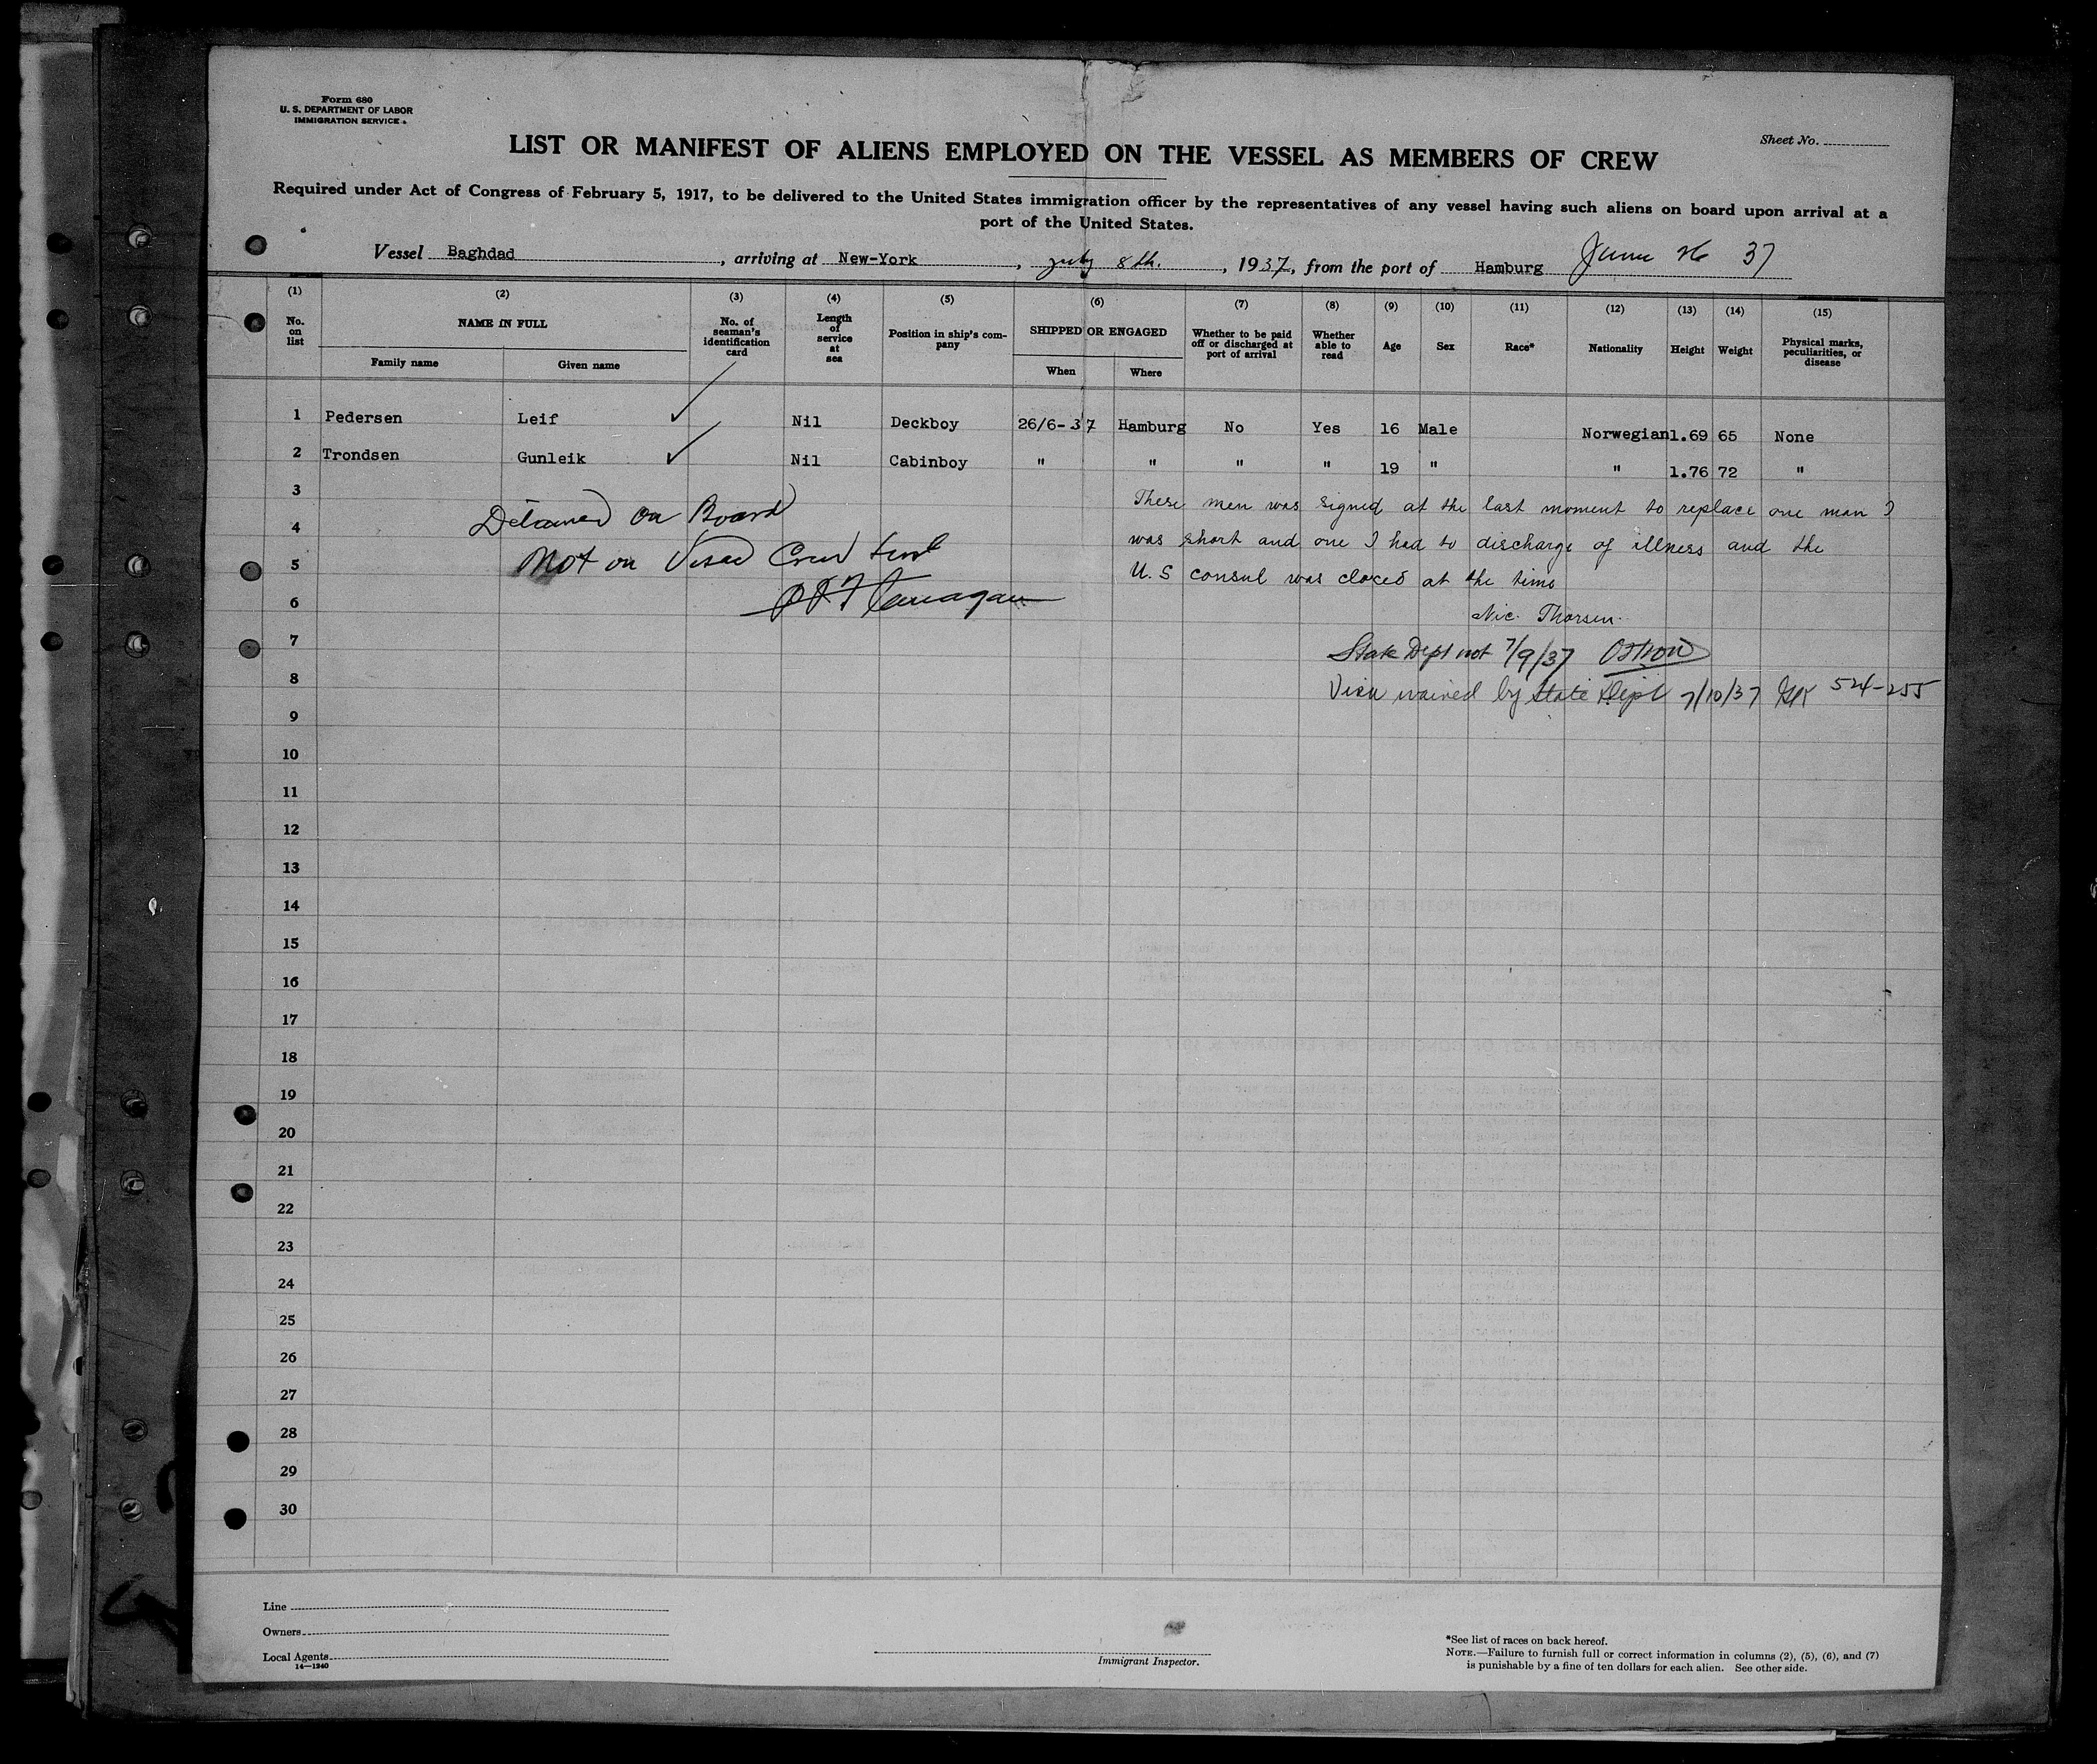 Form 680
U. S. DEPARTMENT OF LABOR
IMMIGRATION SERVICE
Sheet No.
LIST OR MANIFEST OF ALIENS EMPLOYED ON THE VESSEL AS MEMBERS OF CREW
Required under Act of Congress of February 5, 1917, to be delivered to the United States immigration officer by the representatives of any vessel having such aliens on board upon arrival at a
port of the United States.
Vessel Baghdad, arriving at New-York, July 8th., 1937, from the port of Hamburg June 26 37
(1) (2) (3) (4) (5) (6) (7) (8) (9) (10) (11) (12) (13) (14) (15)
No. on list
NAME IN FULL
Family name
Given name
No. of seaman's identification card
Length of service at sea
Position in ship's company
SHIPPED OR ENGAGED
When
Where
Whether to be paid off or discharged at port of arrival
Whether able to read
Age
Sex
Race*
Nationality
Height
Weight
Physical marks, peculiarities, or disease
1 Pedersen Leif ✓ Nil Deckboy 26/6-37 Hamburg No Yes 16 Male Norwegian 1.69 65 None
2 Trondsen Gunleik ✓ Nil Cabinboy " " " " 19 " " 1.76 72 "
3
4
5
6
7
8
9
10
11
12
13
14
15
16
17
18
19
20
21
22
23
24
25
26
27
28
29
30
Detained on Board
Not on Visaed Crew List
These men was signed at the last moment to replace one man I
was short and one I had to discharge of illness and the
U.S consul was closed at the time
Nic. Thorsen.
State Dept not 7/9/37
Visa waived by State Dept 7/10/37 524-255
Line
Owners
Local Agents
14—1240
Immigrant Inspector.
*See list of races on back hereof.
NOTE.—Failure to furnish full or correct information in columns (2), (5), (6), and (7)
is punishable by a fine of ten dollars for each alien. See other side.